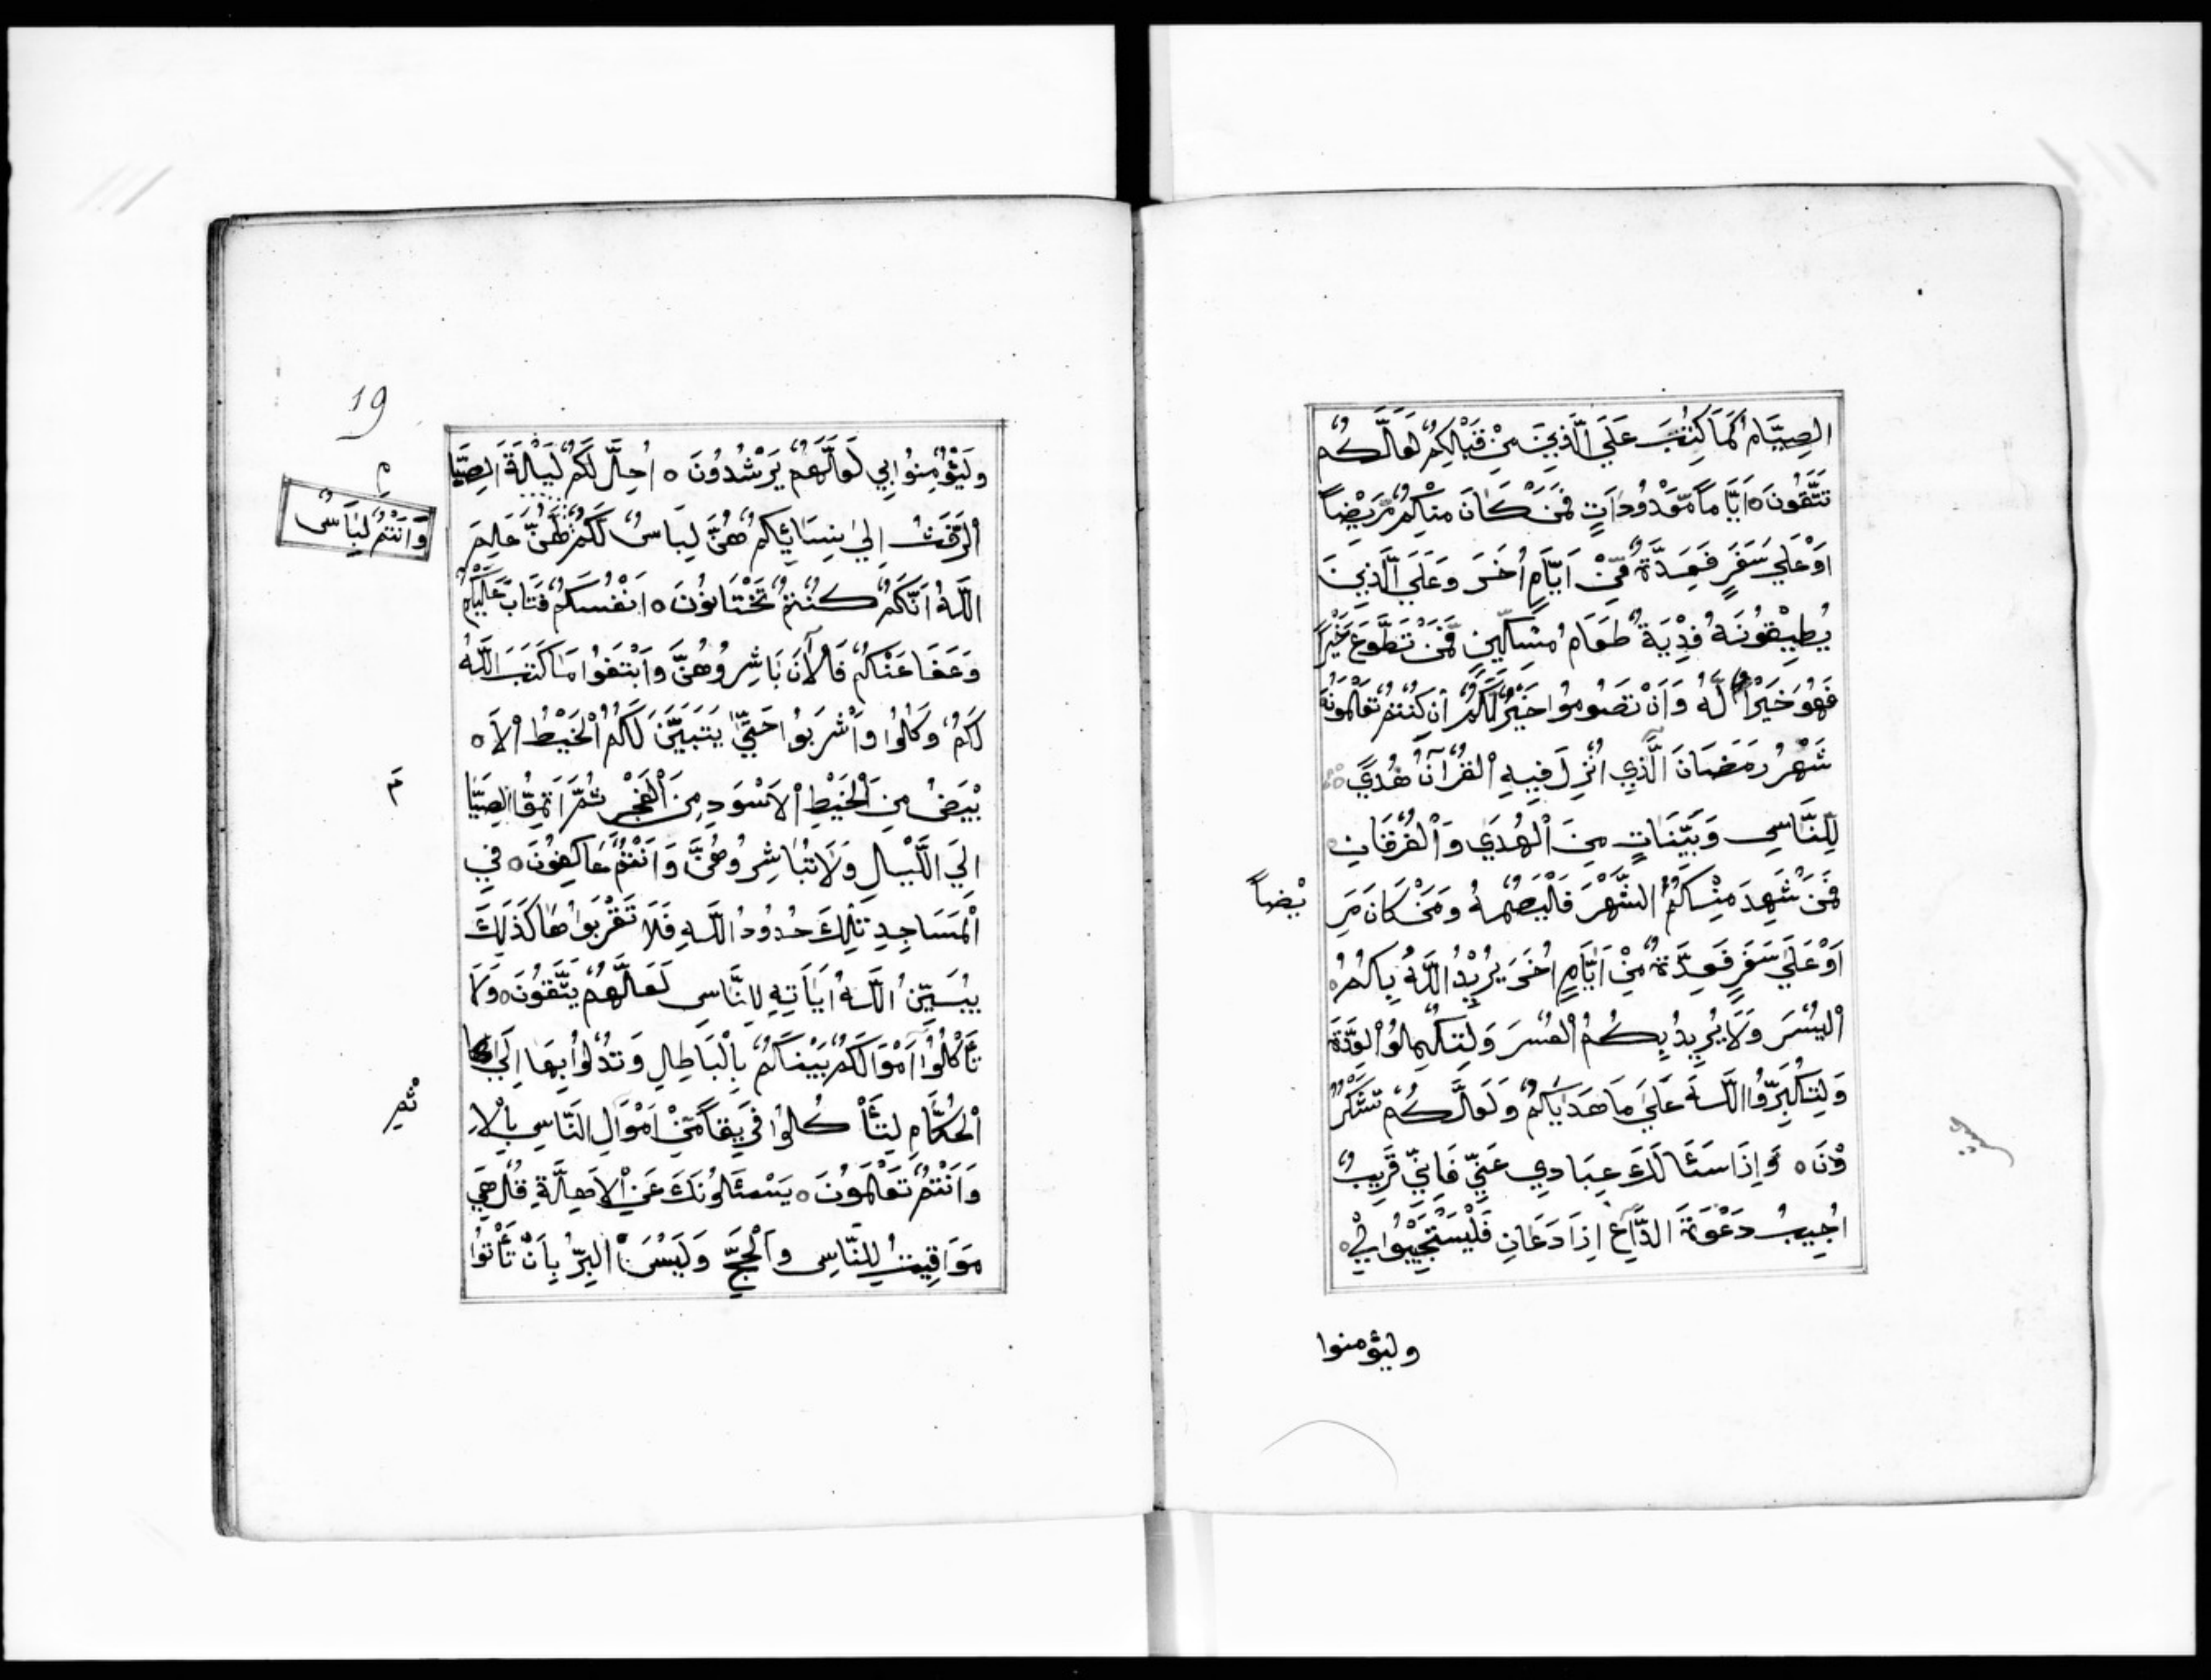 الصِّيَامُ كَمَا كُتِبَ عَلَي الَّذِينَ مِنْ قَبْلِكُمْ لَعَلَّكُمْ
تَتَّقُونَ ه اَيَّامًا مَّعْدُودَاتٍ فَمَنْ كَانَ مِنْكُمْ مَّرِيْضاً
اَوْ عَلَي سَفَرٍ فَعِدَّةٌ مِّنْ اَيَّامٍ اُخَرَ وَعَلَي الَّذِينَ
يُطِيْقُونَهُ فِدْيَةٌ طَعَامُ مِسْكِينٍ فَمَنْ تَطَوَّعَ خَيْرًا
فَهُوَ خَيْرٌ لَّهُ وَاَنْ تَصُومُوا خَيْرٌ لَّكُمْ اِنْ كُنْتُمْ تَعْلَمُونَ
شَهْرُ رَمَضَانَ الَّذِي اُنْزِلَ فِيهِ الْقُرْآنُ هُدَيً
لِلنَّاسِ وَبَيِّنَاتٍ مِنَ الْهُدَي وَالْفُرْقَانِ ه
فَمَنْ شَهِدَ مِنْكُمُ الشَّهْرَ فَلْيَصُمْهُ وَمَنْ كَانَ مَرِ
يْضاً
اَوْ عَلَي سَفَرٍ فَعِدَّةٌ مِنْ اَيَّامٍ اُخَرَ يُرِيْدُ اللَّهُ بِكُمُ ه
الْيُسْرَ وَلَا يُرِيدُ بِكُمُ الْعُسْرَ وَلِتُكْمِلُوا الْعِدَّةَ
وَلِتُكَبِّرُوا اللَّهَ عَلَي مَا هَدَيكُمْ وَلَعَلَّكُمْ تَشْكُرُ
وْنَ ه وَاِذَا سَئَالَكَ عِبَادِي عَنِّي فَاِنِّي قَرِيبٌ
اُجِيبُ دَعْوَةَ الدَّاعِ اِذَا دَعَانِ فَلْيَسْتَجِيْبُوا لِيْ ه
وليؤمنوا
19
وَلْيُؤْمِنُوا بِي لَعَلَّهُمْ يَرْشُدُونَ ه اُحِلَّ لَكُمْ لَيْلَةَ الصِّيَا
مِ
الرَّفَثُ اِلَي نِسَائِكُمْ هُنَّ لِبَاسٌ لَكُمْ لَهُنَّ عَلِمَ
وَاَنْتُمْ لِبَاسٌ
اللَّهُ اَنَّكُمْ كُنْتُمْ تَخْتَانُونَ ه اَنْفُسَكُمْ فَتَابَ عَلَيْكُمْ
وَعَفَا عَنْكُمْ فَالْآنَ بَاشِرُوهُنَّ وَابْتَغُوا مَا كَتَبَ اللَّهُ
لَكُمْ وَكُلُوا وَاشْرَبُوا حَتَّي يَتَبَيَّنَ لَكُمُ الْخَيْطُ الْاَ ه
بْيَضُ مِنَ الْخَيْطِ الْاَسْوَدِ مِنَ الْفَجْرِ ثُمَّ اَتِمُّوا الصِّيَا
مَ
اِلَي اللَّيْلِ وَلَا تُبَاشِرُوهُنَّ وَاَنْتُمْ عَاكِفُونَ ه فِي
الْمَسَاجِدِ تِلْكَ حُدُودُ اللَّهِ فَلَا تَقْرَبُوهَا كَذَلِكَ
يُبَيِّنُ اللَّهُ اَيَاتِهِ لِلنَّاسِ لَعَلَّهُمْ يَتَّقُونَ ه وَلَا
تَأْكُلُوا اَمْوَالَكُمْ بَيْنَكُمْ بِالْبَاطِلِ وَتُدْلُوا بِهَا اِلَي
الْحُكَّامِ لِتَأْكُلُوا فَرِيقًا مِّنْ اَمْوَالِ النَّاسِ بِالْاِ
ثْمِ
وَاَنْتُمْ تَعْلَمُونَ ه يَسْئَلُونَكَ عَنِ الْاَهِلَّةِ قُلْ هِيَ
مَوَاقِيتُ لِلنَّاسِ وَالْحَجِّ وَلَيْسَ الْبِرُّ بِاَنْ تَأْتُوا